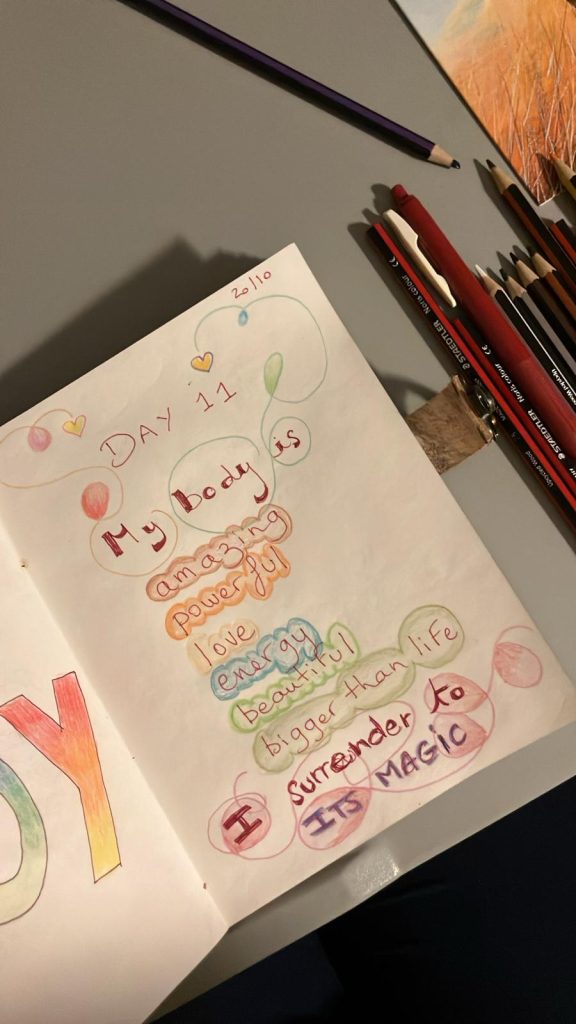 20/10
DAY 11
My body is
amazing
powerful
love
energy
beautiful
bigger than life
I surrender to
ITS MAGIC
DY
STAEDTLER
Noris colour
STAEDTLER
Noris colour
Upcycled Wood